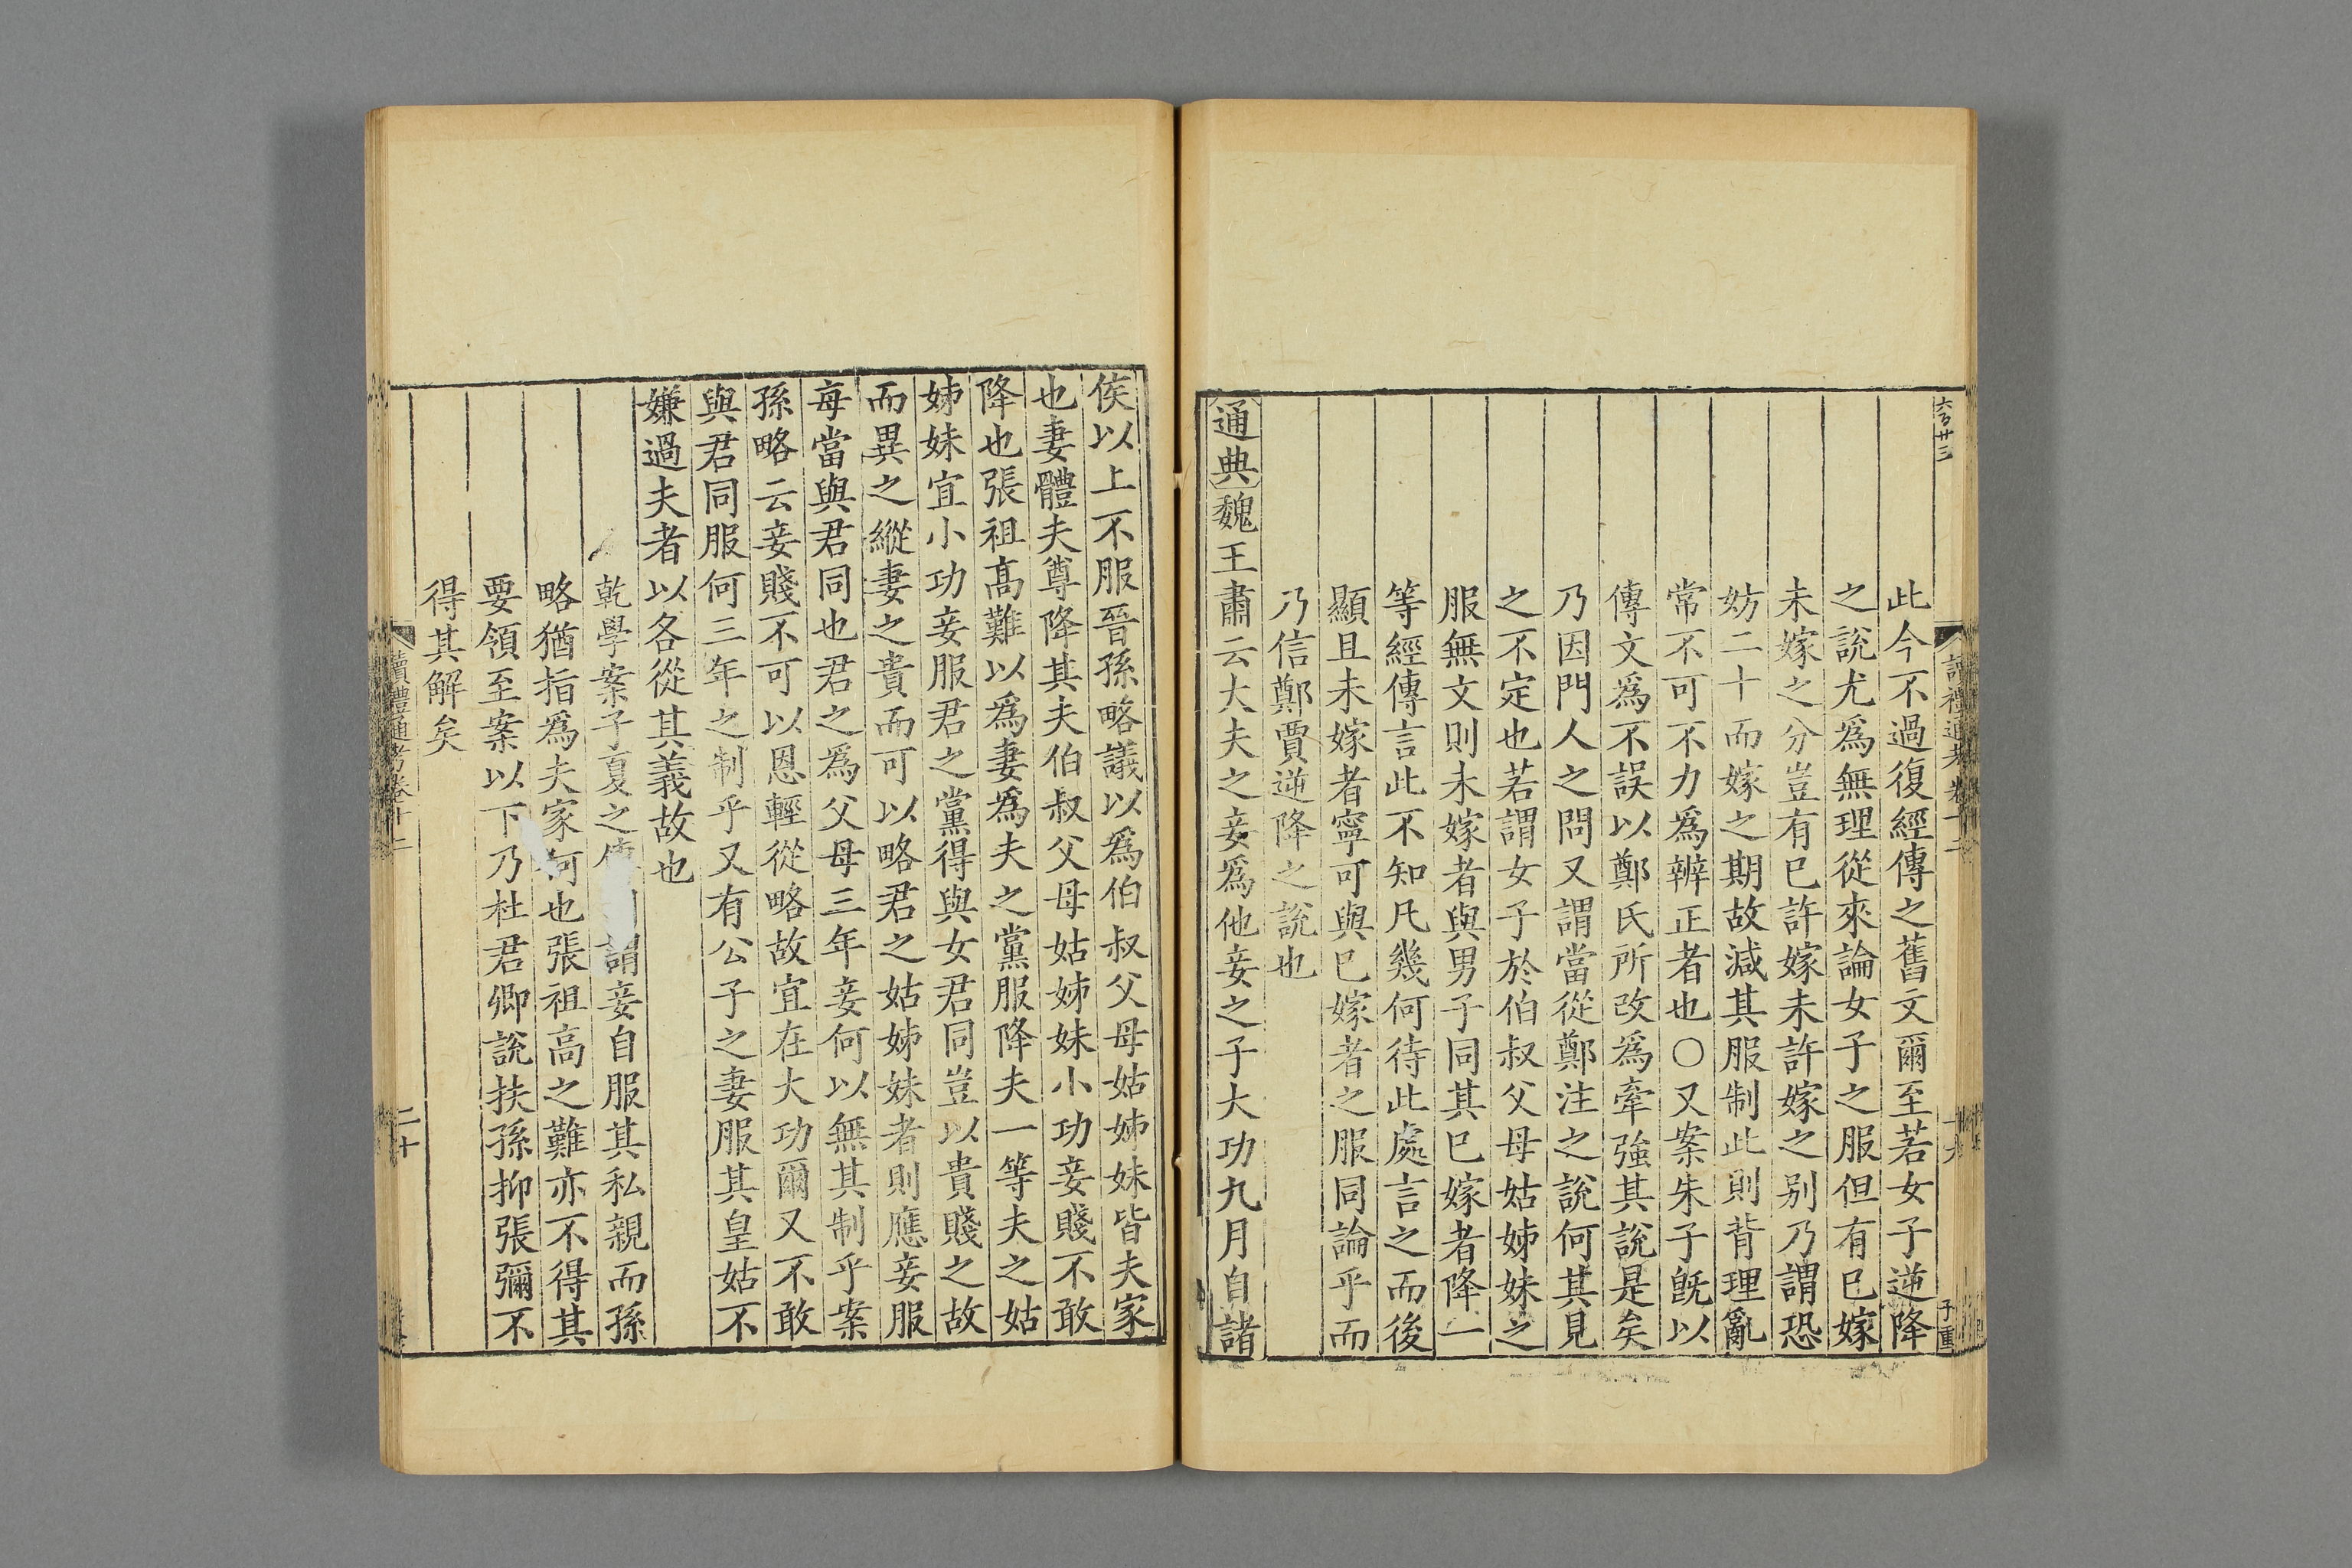 六百廿三
讀禮通考卷十二
十九
子重
此今不過復經傳之舊文爾至若女子逆降
之說尤爲無理從來論女子之服但有已嫁
未嫁之分豈有已許嫁未許嫁之别乃謂恐
妨二十而嫁之期故減其服制此則背理亂
常不可不力爲辨正者也〇又案朱子旣以
傳文爲不誤以鄭氏所改爲牽强其說是矣
乃因門人之問又謂當從鄭注之說何其見
之不定也若謂女子於伯叔父母姑姊妹之
服無文則未嫁者與男子同其已嫁者降一
等經傳言此不知凡幾何待此處言之而後
顯且未嫁者寧可與已嫁者之服同論乎而
乃信鄭賈逆降之說也
通典魏王肅云大夫之妾爲他妾之子大功九月自諸
侯以上不服晉孫略議以爲伯叔父母姑姊妹皆夫家
也妻體夫尊降其夫伯叔父母姑姊妹小功妾賤不敢
降也張祖高難以爲妻爲夫之黨服降夫一等夫之姑
姊妹宜小功妾服君之黨得與女君同豈以貴賤之故
而異之縱妻之貴而可以略君之姑姊妹者則應妾服
每當與君同也君之爲父母三年妾何以無其制乎案
孫略云妾賤不可以恩輕從略故宜在大功爾又不敢
與君同服何三年之制乎又有公子之妻服其皇姑不
嫌過夫者以各從其義故也
乾學案子夏之傳謂妾自服其私親而孫
略猶指爲夫家何也張祖高之難亦不得其
要領至案以下乃杜君卿說扶孫抑張彌不
得其解矣
讀禮通考卷十二
二十